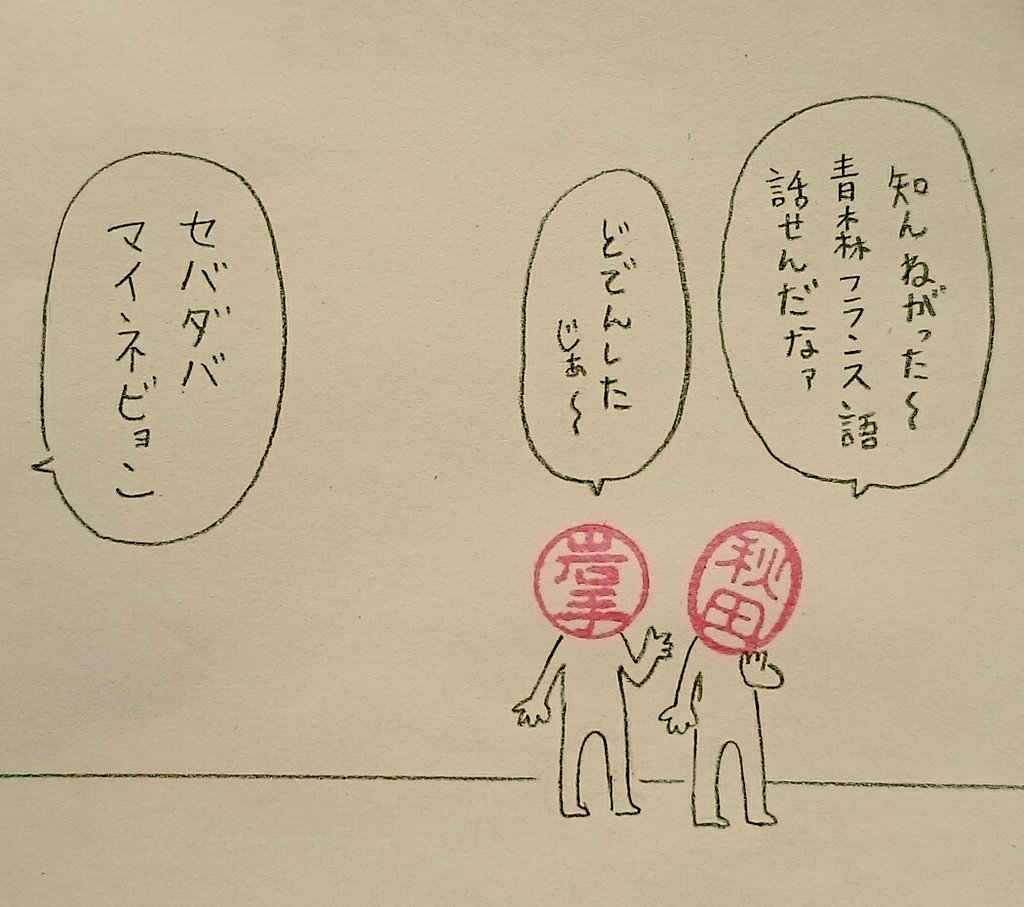 知んねがった〜
青森フランス語
話せんだなァ
どでんした
じぁ〜
セバダバ
マイネビョン
岩手
秋田